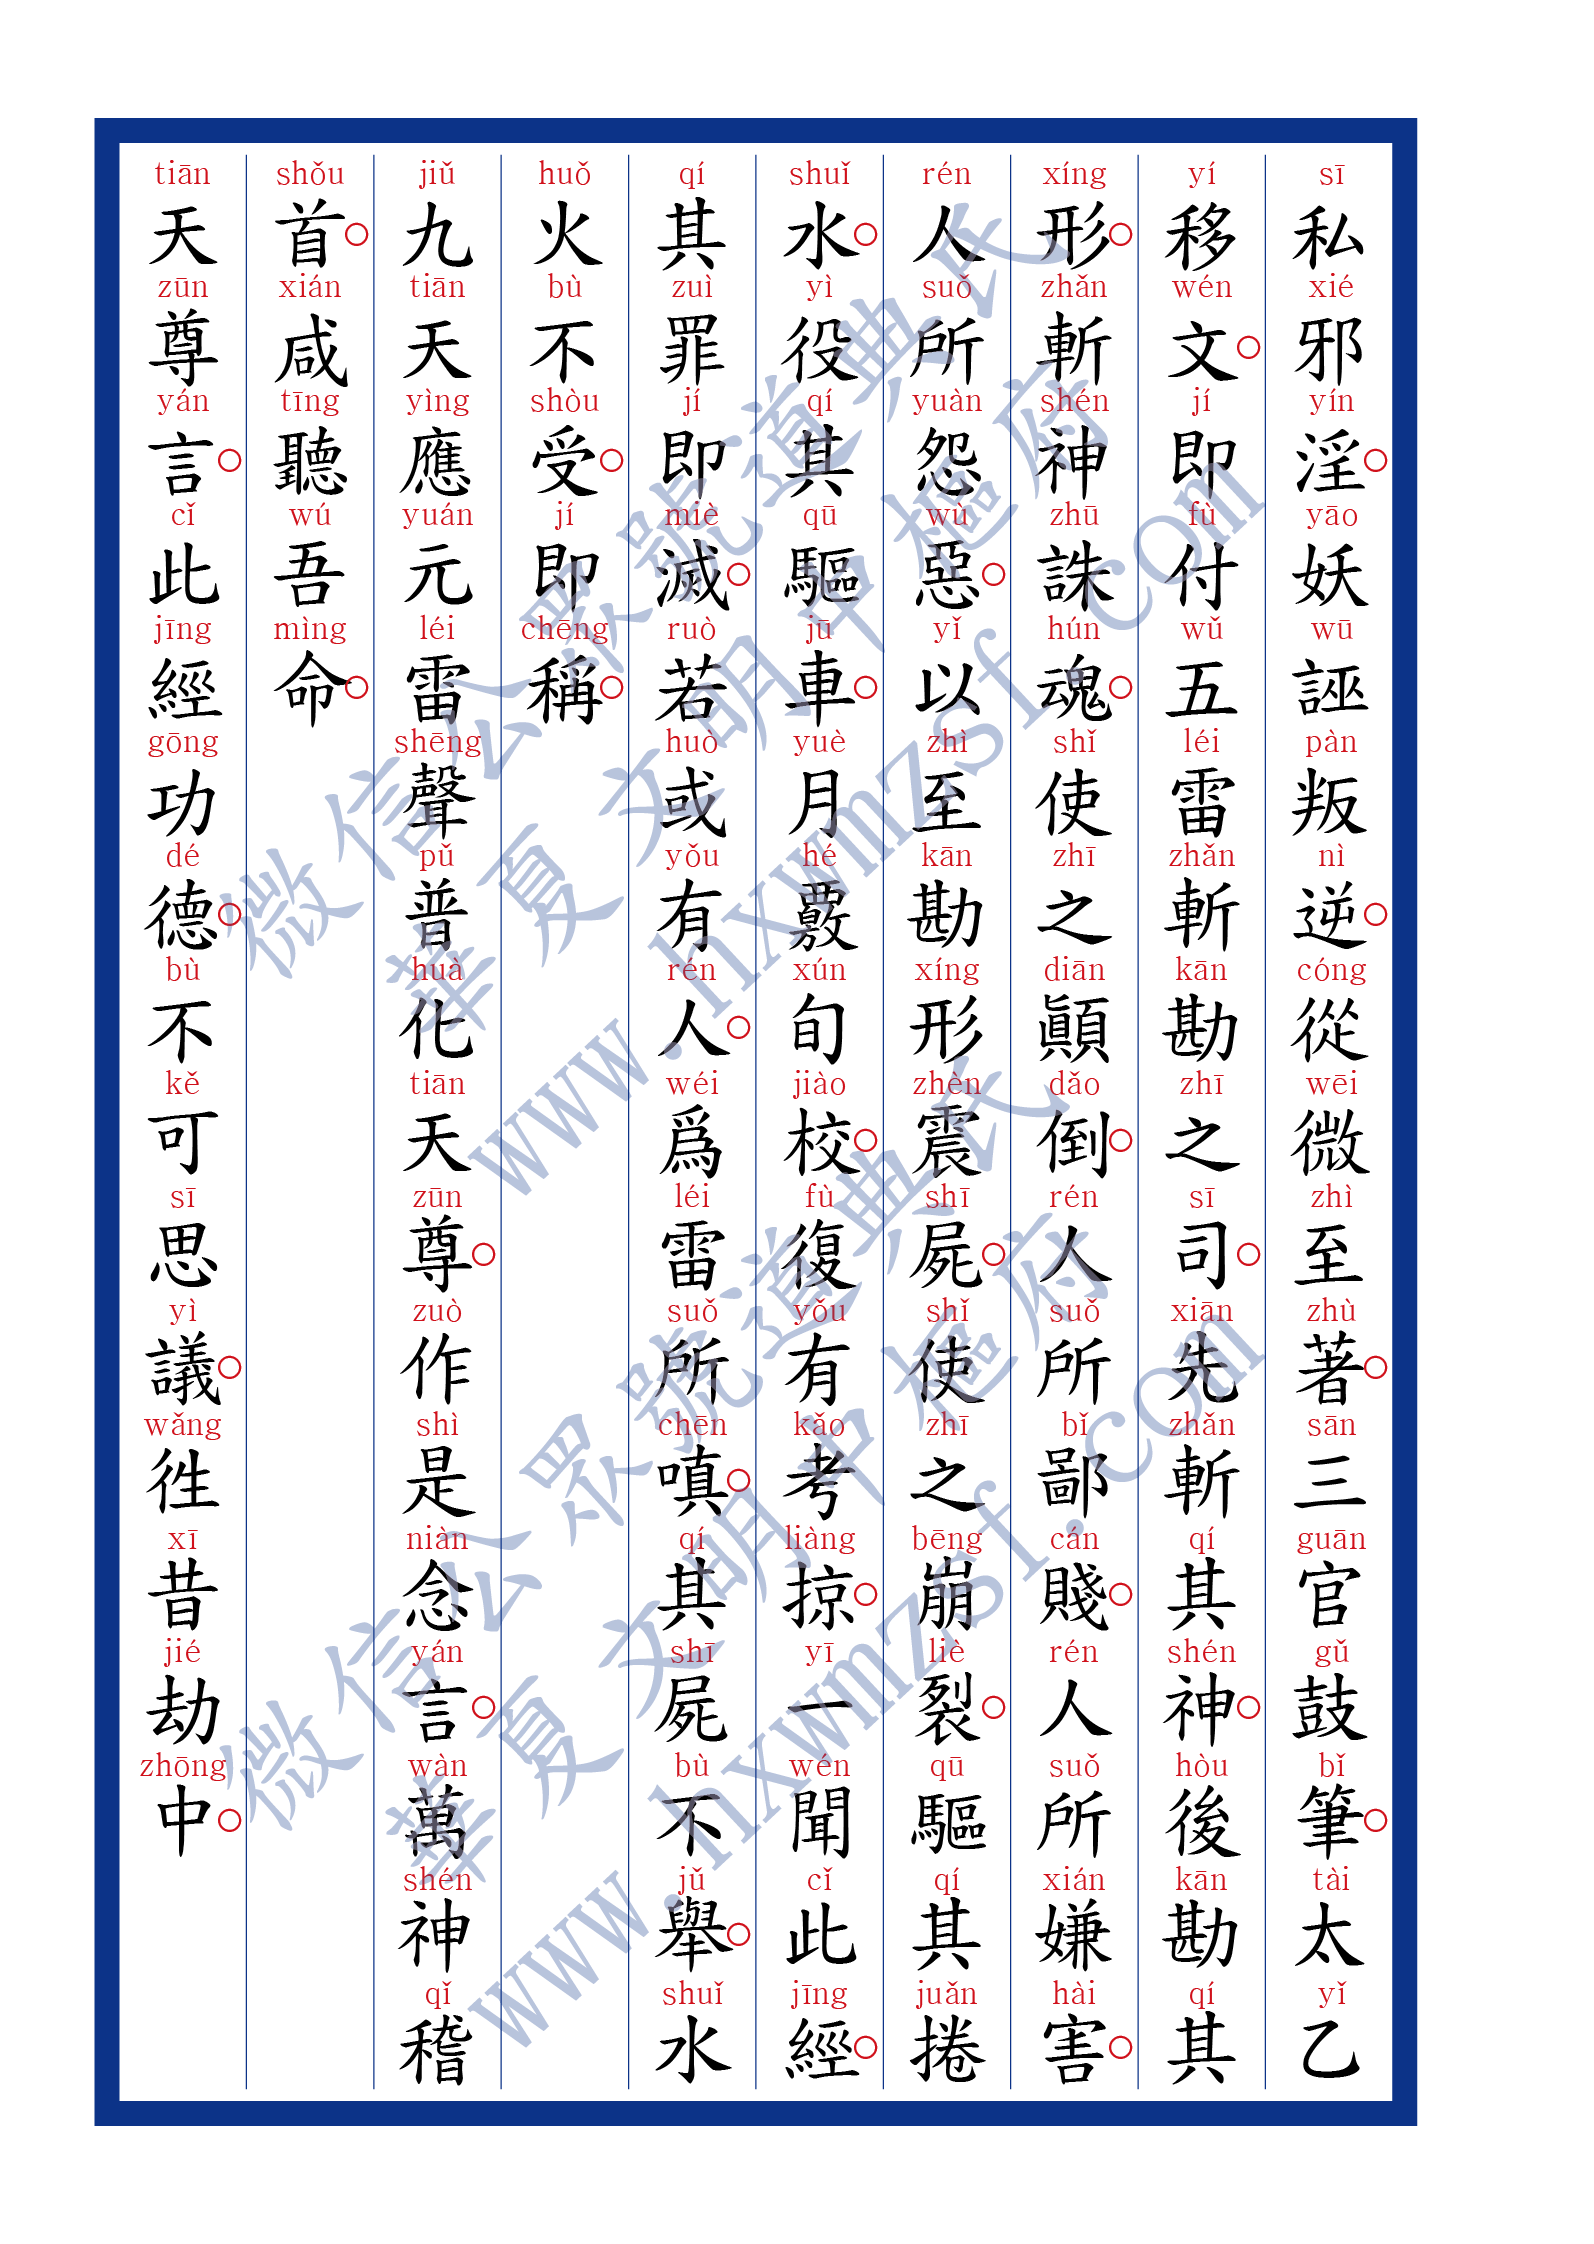 sī xié yín yāo wū pàn nì cóng wēi zhì zhù sān guān gǔ bǐ tài yǐ
私邪淫○妖誣叛逆○從微至著○三官鼓筆○太乙
yí wén jí fù wǔ léi zhǎn kān zhī sī xiān zhǎn qí shén hòu kān qí
移文○即付五雷斬勘之司○先斬其神○後勘其
xíng zhǎn shén zhū hún shǐ zhī diān dǎo rén suǒ bǐ cán rén suǒ xián hài
形○斬神誅魂○使之顚倒○人所鄙賤○人所嫌害○
rén suǒ yuàn wù yǐ zhì kān xíng zhèn shī shǐ zhī bēng liè qū qí juǎn
人所怨惡○以至勘形震屍○使之崩裂○驅其捲
shuǐ yì qí qū jū yuè hé xún jiào fù yǒu kǎo liàng yī wén cǐ jīng
水○役其驅車○月覈旬校○復有考掠○一聞此經○
qí zuì jí miè ruò huò yǒu rén wéi léi suǒ chēn qí shī bù jǔ shuǐ
其罪即滅○若或有人○爲雷所嗔○其屍不舉○水
huǒ bù shòu jí chēng
火不受○即稱○
jiǔ tiān yìng yuán léi shēng pǔ huà tiān zūn zuò shì niàn yán wàn shén qǐ
九天應元雷聲普化天尊○作是念言○萬神稽
shǒu xián tīng wú mìng
首○咸聽吾命○
tiān zūn yán cǐ jīng gōng dé bù kě sī yì wǎng xī jié zhōng
天尊言○此經功德○不可思議○徃昔劫中○
微信公眾號道典氏
華夏文明中樞府
www.hxwmzsf.com
微信公眾號道典氏
華夏文明中樞府
www.hxwmzsf.com